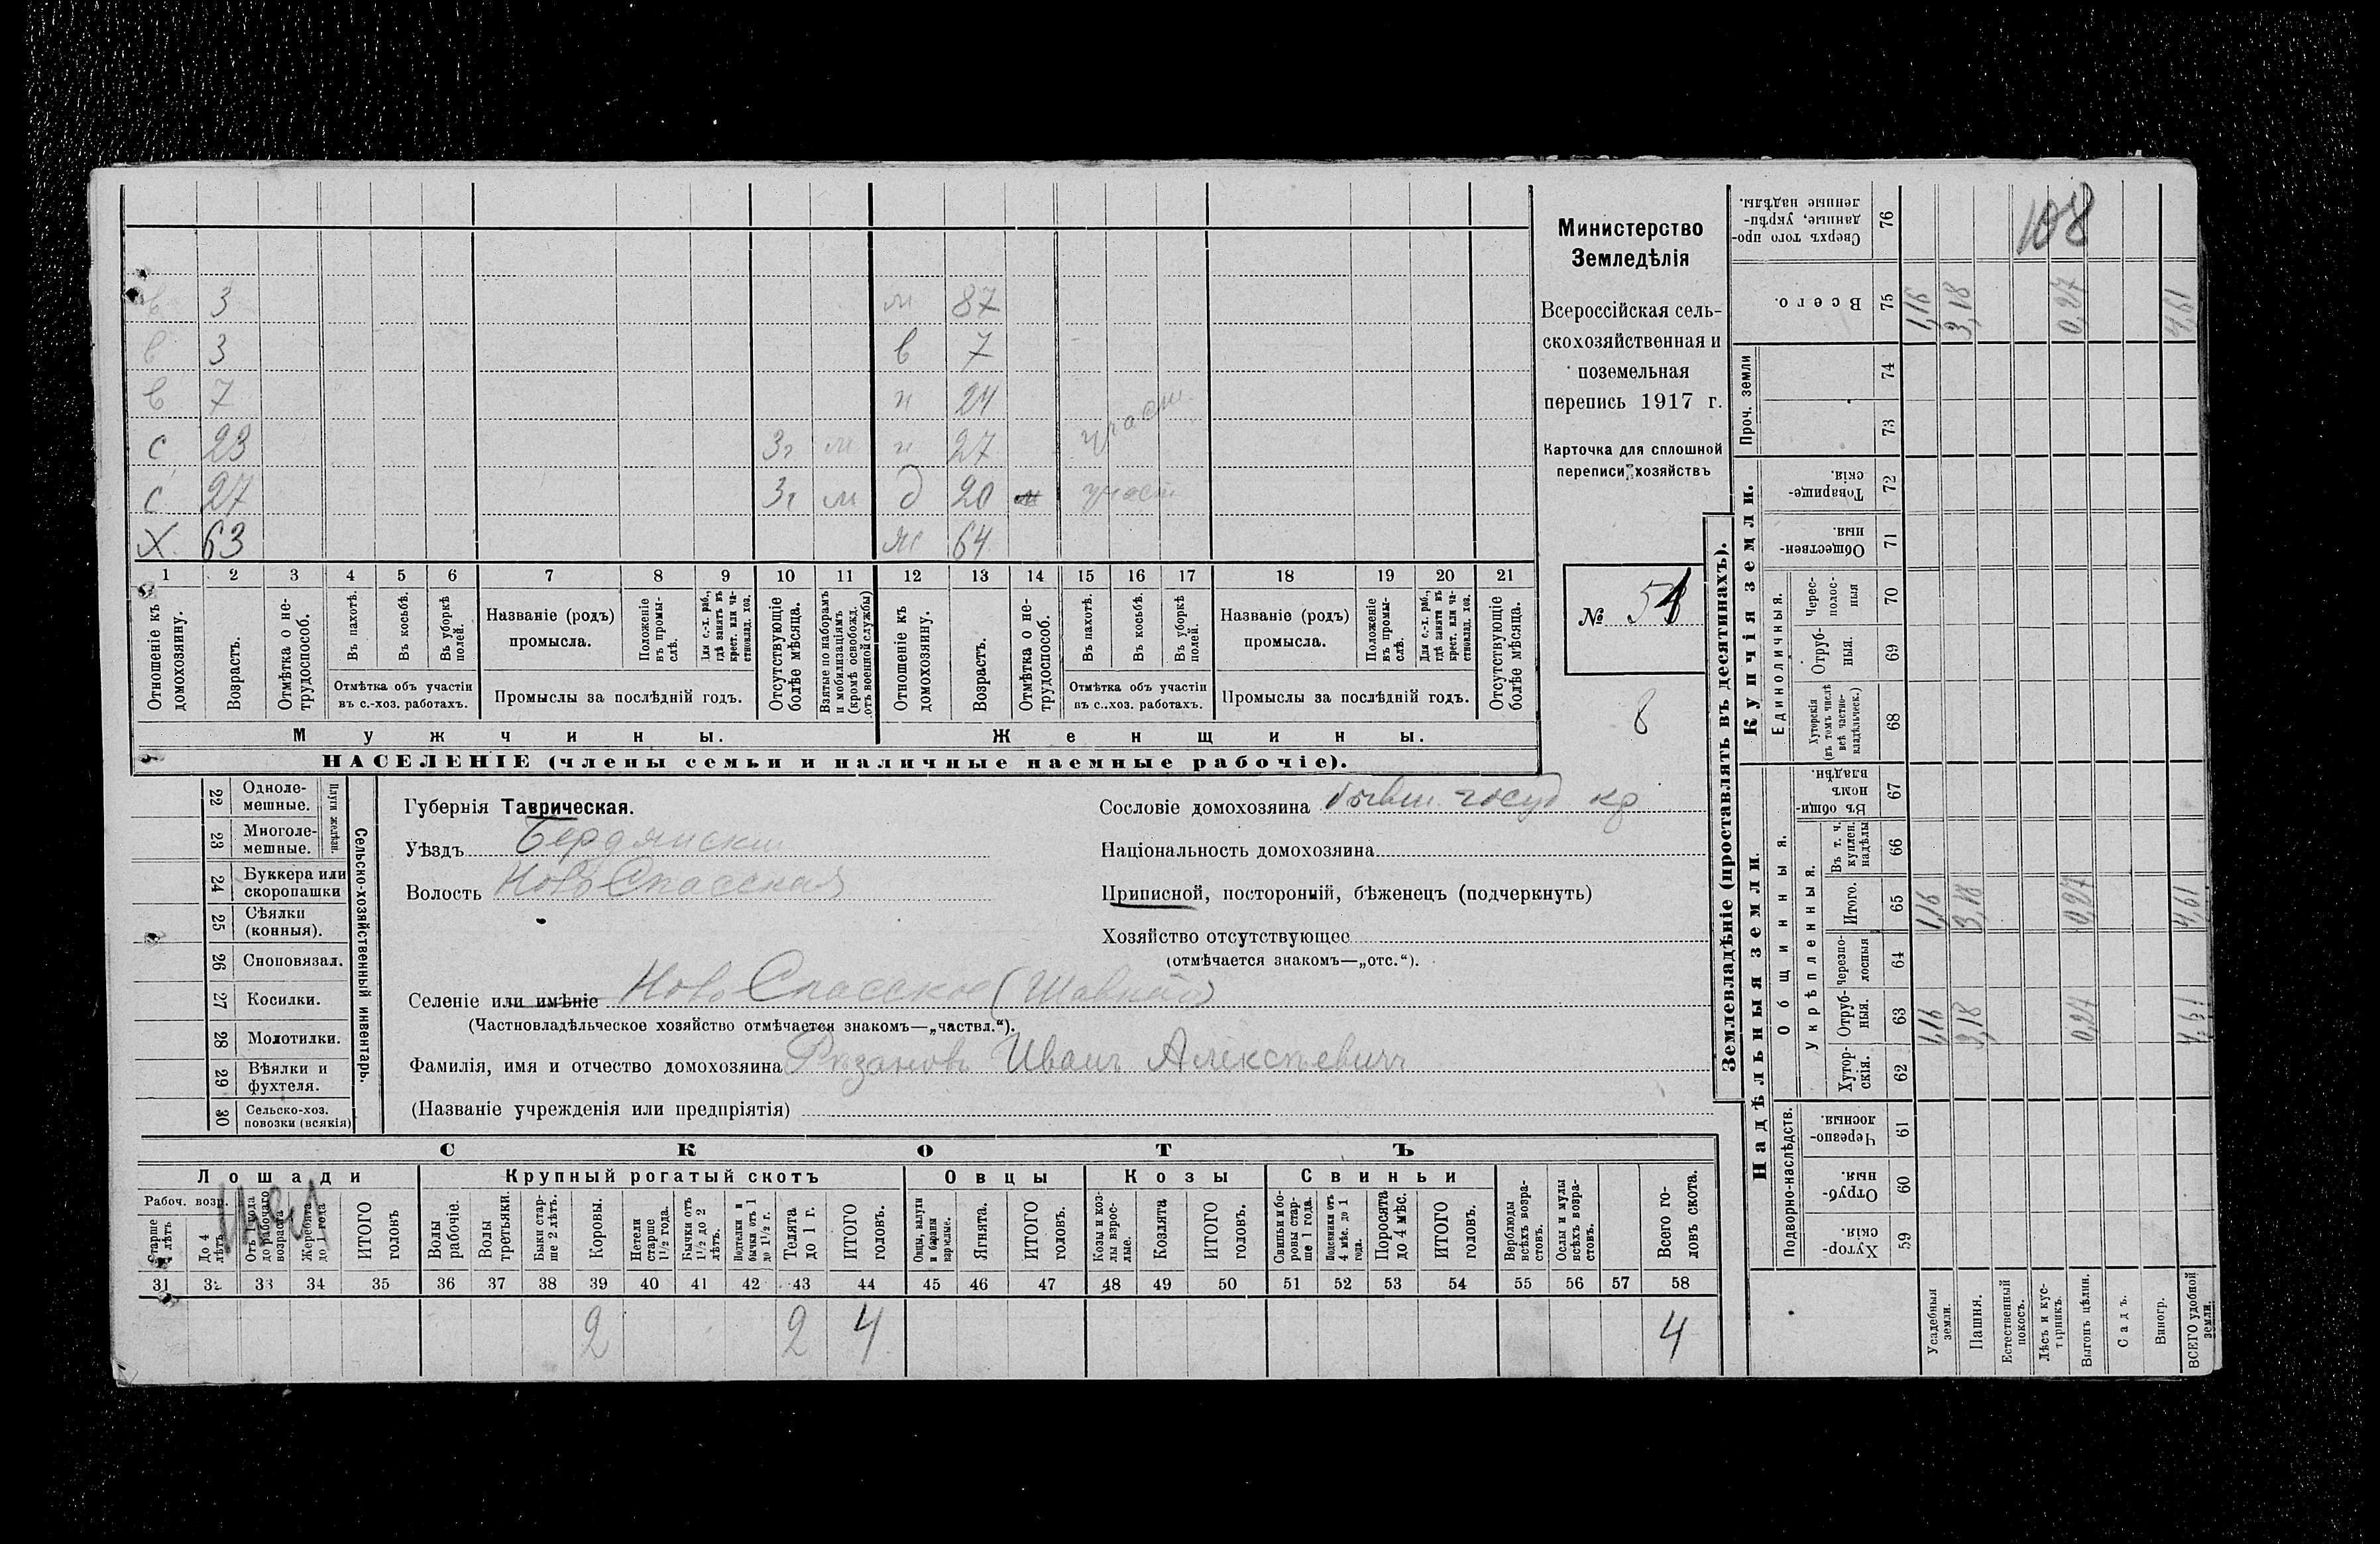 в 3 м 87
в 3 в 7
в 7 н 24
с 23 3г м н 27 участ.
с 27 3г м д 20 участ
Х 63 ж 64
1 2 3 4 5 6 7 8 9 10 11 12 13 14 15 16 17 18 19 20 21
Отношеніе къ домохозяину.
Возрастъ.
Отмѣтка о нетрудоспособ.
Въ пахотѣ.
Въ косьбѣ.
Въ уборкѣ полей.
Отмѣтка объ участіи въ с.-хоз. работахъ.
Названіе (родъ) промысла.
Положеніе въ промыслѣ.
Для с.-х. раб., гдѣ занятъ въ крест. или частновлад. хоз.
Промыслы за послѣдній годъ.
Отсутствующіе болѣе мѣсяца.
Взятые по наборамъ и мобилизаціямъ (кромѣ освобожд. отъ военной службы)
Отношеніе къ домохозяину.
Возрастъ.
Отмѣтка о нетрудоспособ.
Въ пахотѣ.
Въ косьбѣ.
Въ уборкѣ полей.
Отмѣтка объ участіи въ с..хоз. работахъ.
Названіе (родъ) промысла.
Положеніе въ промыслѣ.
Для с.-х. раб., гдѣ занятъ въ крест. или частновлад. хоз.
Промыслы за послѣдній годъ.
Отсутствующіе болѣе мѣсяца.
Мужчины. Женщины.
НАСЕЛЕНІЕ (члены семьи и наличные наемные рабочіе).
Министерство
Земледѣлія
Всероссійская сель-
скохозяйственная и
поземельная
перепись 1917 г.
Карточка для сплошной
переписи хозяйствъ
№
8
22 Одноле-мешные.
23 Многоле-мешные.
Плуги желѣзн.
24 Буккера или скоропашки
25 Сѣялки (конныя).
26 Сноповязал.
27 Косилки.
28 Молотилки.
29 Вѣялки и фухтеля.
30 Сельско-хоз. повозки (всякія)
Сельско-хозяйственный инвентарь.
Губернія Таврическая.
Уѣздъ Бердянскій
Волость Ново Спасская
Сословіе домохозяина бывш. госуд кр
Національность домохозяина
Приписной, посторонній, бѣженец (подчеркнуть)
Хозяйство отсутствующее
(отмѣчается знакомъ—„отс.“).
Селеніе или имѣніе Ново Спасское
(Частновладѣльческое хозяйство отмѣчается знакомъ—„частвл.“).
Фамилія, имя и отчество домохозяина Рязановъ Иванъ Алексѣевичъ
(Названіе учрежденія или предпріятія)
СКОТЪ
Лошади Крупный рогатый скотъ Овцы Козы Свиньи
Рабоч. возр.
Старше 4 лѣтъ
До 4 лѣтъ
Отъ 1 года до рабочаго возраста
Жеребята до 1 года
ИТОГО головъ
Волы рабочіе.
Волы третьяки.
Быки старше 2 лѣтъ.
Коровы.
Нетели старше 1 1/2 года.
Бычки отъ 1 1/2 до 2 лѣтъ.
Подтелки и бычки отъ 1 до 1 1/2 г.
Телята до 1 г.
ИТОГО головъ.
Овцы, валухи и бараны взрослые.
Ягнята.
ИТОГО головъ.
Козы и козлы взрослые.
Козлята
ИТОГО головъ.
Свиньи и боровы старше 1 года.
Подсвинки отъ 4 мѣс. до 1 года.
Поросята до 4 мѣс.
ИТОГО головъ.
Верблюды всѣхъ возрастовъ.
Ослы и мулы всѣхъ возрастовъ.
Всего головъ скота.
31 32 33 34 35 36 37 38 39 40 41 42 43 44 45 46 47 48 49 50 51 52 53 54 55 56 57 58
2 2 4 4
Землевладѣніе (проставлять въ десятинахъ).
Надѣльныя земли. Купчія земли. Проч. земли
Подворно-наслѣдств. Общинныя. Единоличныя.
Укрѣпленныя.
Хуторскія. 59
Отрубныя. 60
Черезполосныя. 61
Хуторскія. 62
Отрубныя. 63
Черезполосныя 64
Итого. 65
Въ т. ч. куплен. надѣлы 66
Въ общинномъ владѣн. 67
Хуторскія (въ томъ числѣ всѣ частновладѣльческ.) 68
Отрубныя. 69
Черезполосныя 70
Общественныя. 71
Товарищескія. 72
73
74
Всего. 75
Сверхъ того проданные, укрѣпленные надѣлы. 76
Усадебныя земли. 1,16 1,16 1,16
Пашня. 3,18 3,18 3,18
Естественный покосъ.
Лѣсъ и кустарникъ.
Выгонъ цѣлин. 0,27 0,27 0,27
Садъ.
Виногр.
ВСЕГО удобной земли. 4,61 4,61 4,61
108